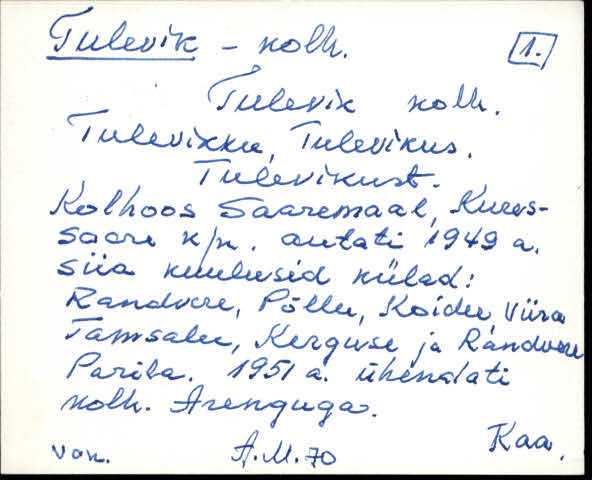 Tulevik - kolh. 1.
Tulevik kolh.
Tulevikku, Tulevikus.
Tulevikust.
Kolhoos Saaremaal, Kures-
saare k/n. asutati 1949 a.
siia kuulusid külad:
Randvere, Põllu, Koidu Viira
Tamsalu, Kerguse ja Randvere
Parila. 1951 a. ühendati
kolh. Arenguga.
Kaa.
A.M. 70